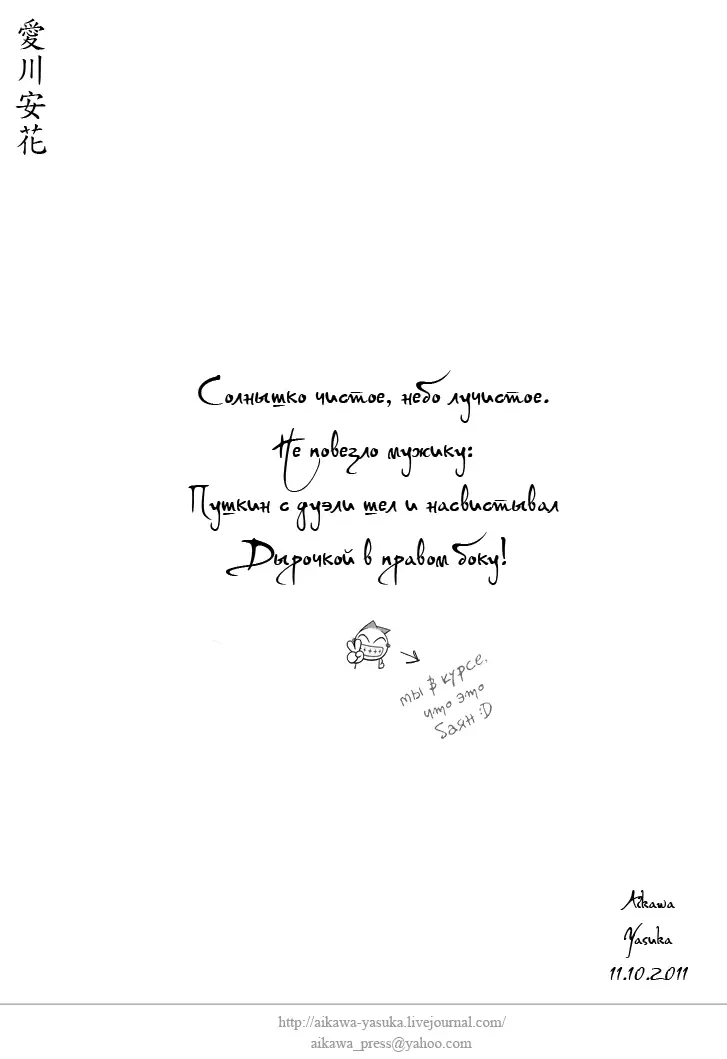 愛川安花
Солнышко чистое, небо лучистое.
Не повезло мужику:
Пушкин с дуэли шел и насвистывал
Дырочкой в правом боку!
ты в курсе,
что это
баян :D
Aikawa
Yasuka
11.10.2011
http://aikawa-yasuka.livejournal.com/
aikawa_press@yahoo.com